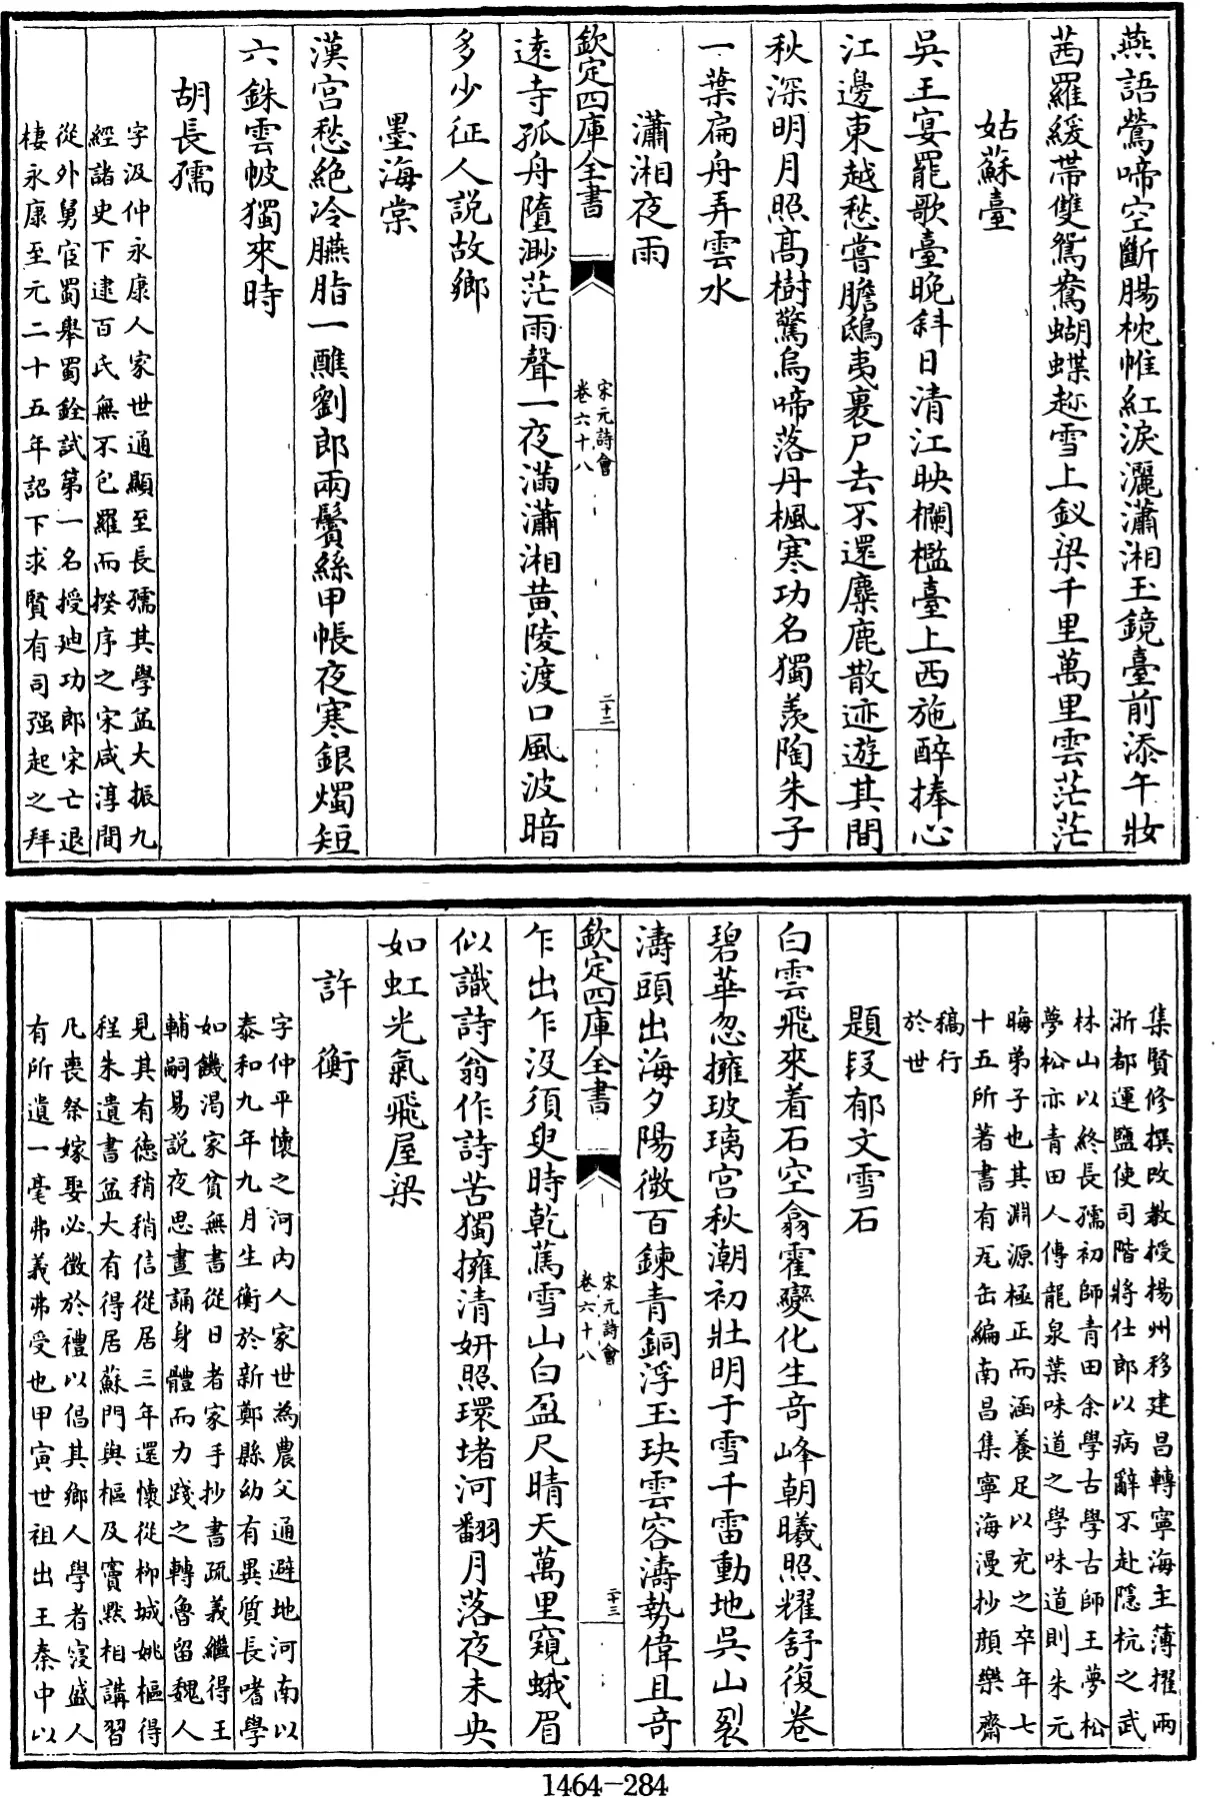 燕語鶯啼空斷腸枕帷紅淚灑瀟湘玉鏡臺前添午妝
茜羅緩帶雙鴛鴦蝴蝶趂雪上釵梁千里萬里雲茫茫
姑蘇臺
吳王宴罷歌臺晚斜日清江映欄檻臺上西施醉捧心
江邊東越愁嘗膽鴟夷裹尸去不還麋鹿散迹遊其間
秋深明月照髙樹驚烏啼落丹楓寒功名獨羨陶朱子
一葉扁舟弄雲水
瀟湘夜雨
欽定四庫全書
宋元詩會
卷六十八
二十二
遠寺孤舟墮渺茫雨聲一夜滿瀟湘黄陵渡口風波暗
多少征人説故鄉
墨海棠
漢宫愁絶冷臙脂一醮劉郎兩鬢絲甲帳夜寒銀燭短
六銖雲帔獨來時
胡長孺
字汲仲永康人家世通顯至長孺其學益大振九
經諸史下逮百氏無不包羅而揆序之宋咸淳間
從外舅宦蜀舉蜀銓試第一名授廸功郎宋亡退
棲永康至元二十五年詔下求賢有司强起之拜
集賢修撰改教授楊州移建昌轉寧海主薄擢兩
浙都運鹽使司階將仕郎以病辭不赴隱杭之武
林山以終長孺初師青田余學古學古師王夢松
夢松亦青田人傳龍泉葉味道之學味道則朱元
晦弟子也其淵源極正而涵養足以充之卒年七
十五所著書有瓦缶編南昌集寧海漫抄顔樂齋
稿行
於世
題段郁文雪石
白雲飛來着石空翕霍變化生竒峰朝曦照耀舒復卷
碧華忽擁玻璃宫秋潮初壯明于雪千雷動地吳山裂
濤頭出海夕陽微百鍊青銅浮玉玦雲容濤勢偉且竒
欽定四庫全書
宋元詩會
卷六十八
二十三
乍出乍没須臾時乾蔫雪山白盈尺晴天萬里窺蛾眉
似識詩翁作詩苦獨擁清妍照環堵河翻月落夜未央
如虹光氣飛屋梁
許衡
字仲平懷之河内人家世為農父通避地河南以
泰和九年九月生衡於新鄭縣幼有異質長嗜學
如饑渴家貧無書從日者家手抄書疏義繼得王
輔嗣易説夜思晝誦身體而力踐之轉魯留魏人
見其有德稍稍信從居三年還懷從栁城姚樞得
程朱遺書益大有得居蘇門與樞及竇黙相講習
凡喪祭嫁娶必徵於禮以倡其鄉人學者寖盛人
有所遺一毫弗義弗受也甲寅世祖出王秦中以
1464-284